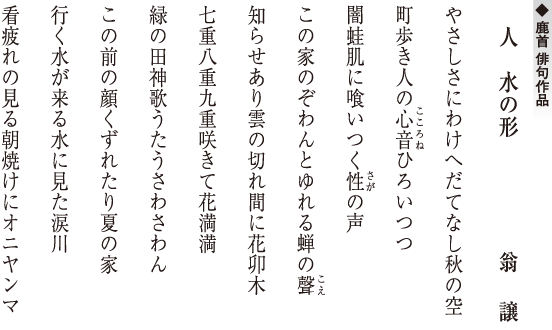 ◆鹿首 俳句作品
人　水の形　　翁　譲
やさしさにわけへだてなし秋の空
町歩き人の心音ひろいつつ
こころね
闇蛙肌に喰いつく性の声
さが
この家のぞわんとゆれる蝉の聲
こえ
知らせあり雲の切れ間に花卯木
七重八重九重咲きて花満満
緑の田神歌うたうさわさわん
この前の顔くずれたり夏の家
行く水が来る水に見た涙川
看疲れの見る朝焼けにオニヤンマ